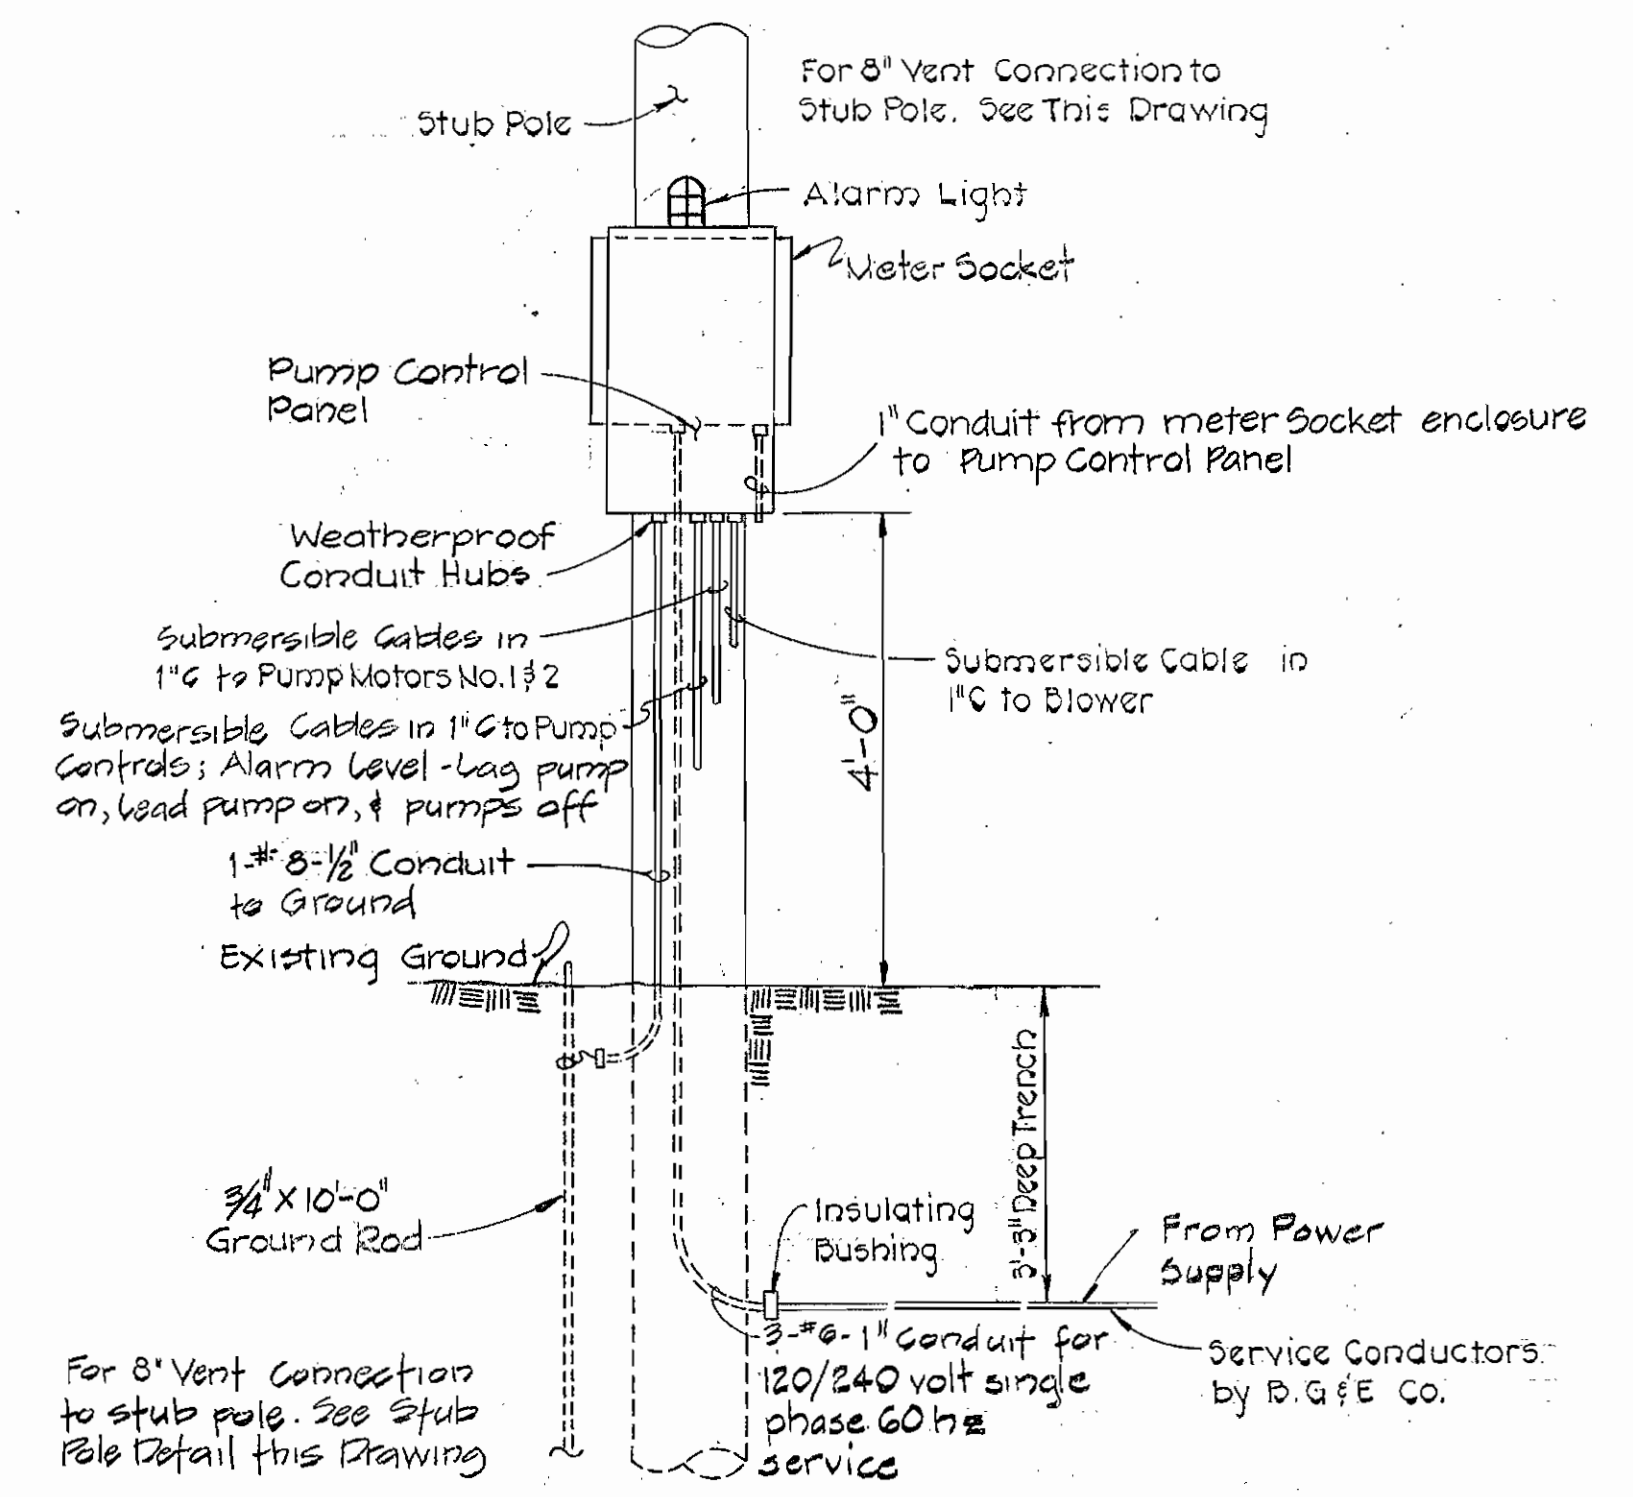 For 8" Vent Connection to
Stub Pole. See This Drawing
Stub Pole
Alarm Light
Meter Socket
Pump Control
Panel
1" Conduit from meter Socket enclosure
to Pump Control Panel
Weatherproof
Conduit Hubs
Submersible Cables in
1"C to Pump Motors No. 1 & 2
Submersible Cable in
1"C to Blower
Submersible Cables in 1"C to Pump
Controls; Alarm Level - Lag pump
on, Lead pump on, & pumps off
4'-0"
1-# 8-1/2" Conduit
to Ground
Existing Ground
3'-3" Deep Trench
3/4" X 10'-0"
Ground Rod
Insulating
Bushing
From Power
Supply
3-#6-1" Conduit for
120/240 volt single
phase 60 hz
service
Service Conductors
by B.G & E Co.
For 8" Vent Connection
to stub pole. See Stub
Pole Detail this Drawing